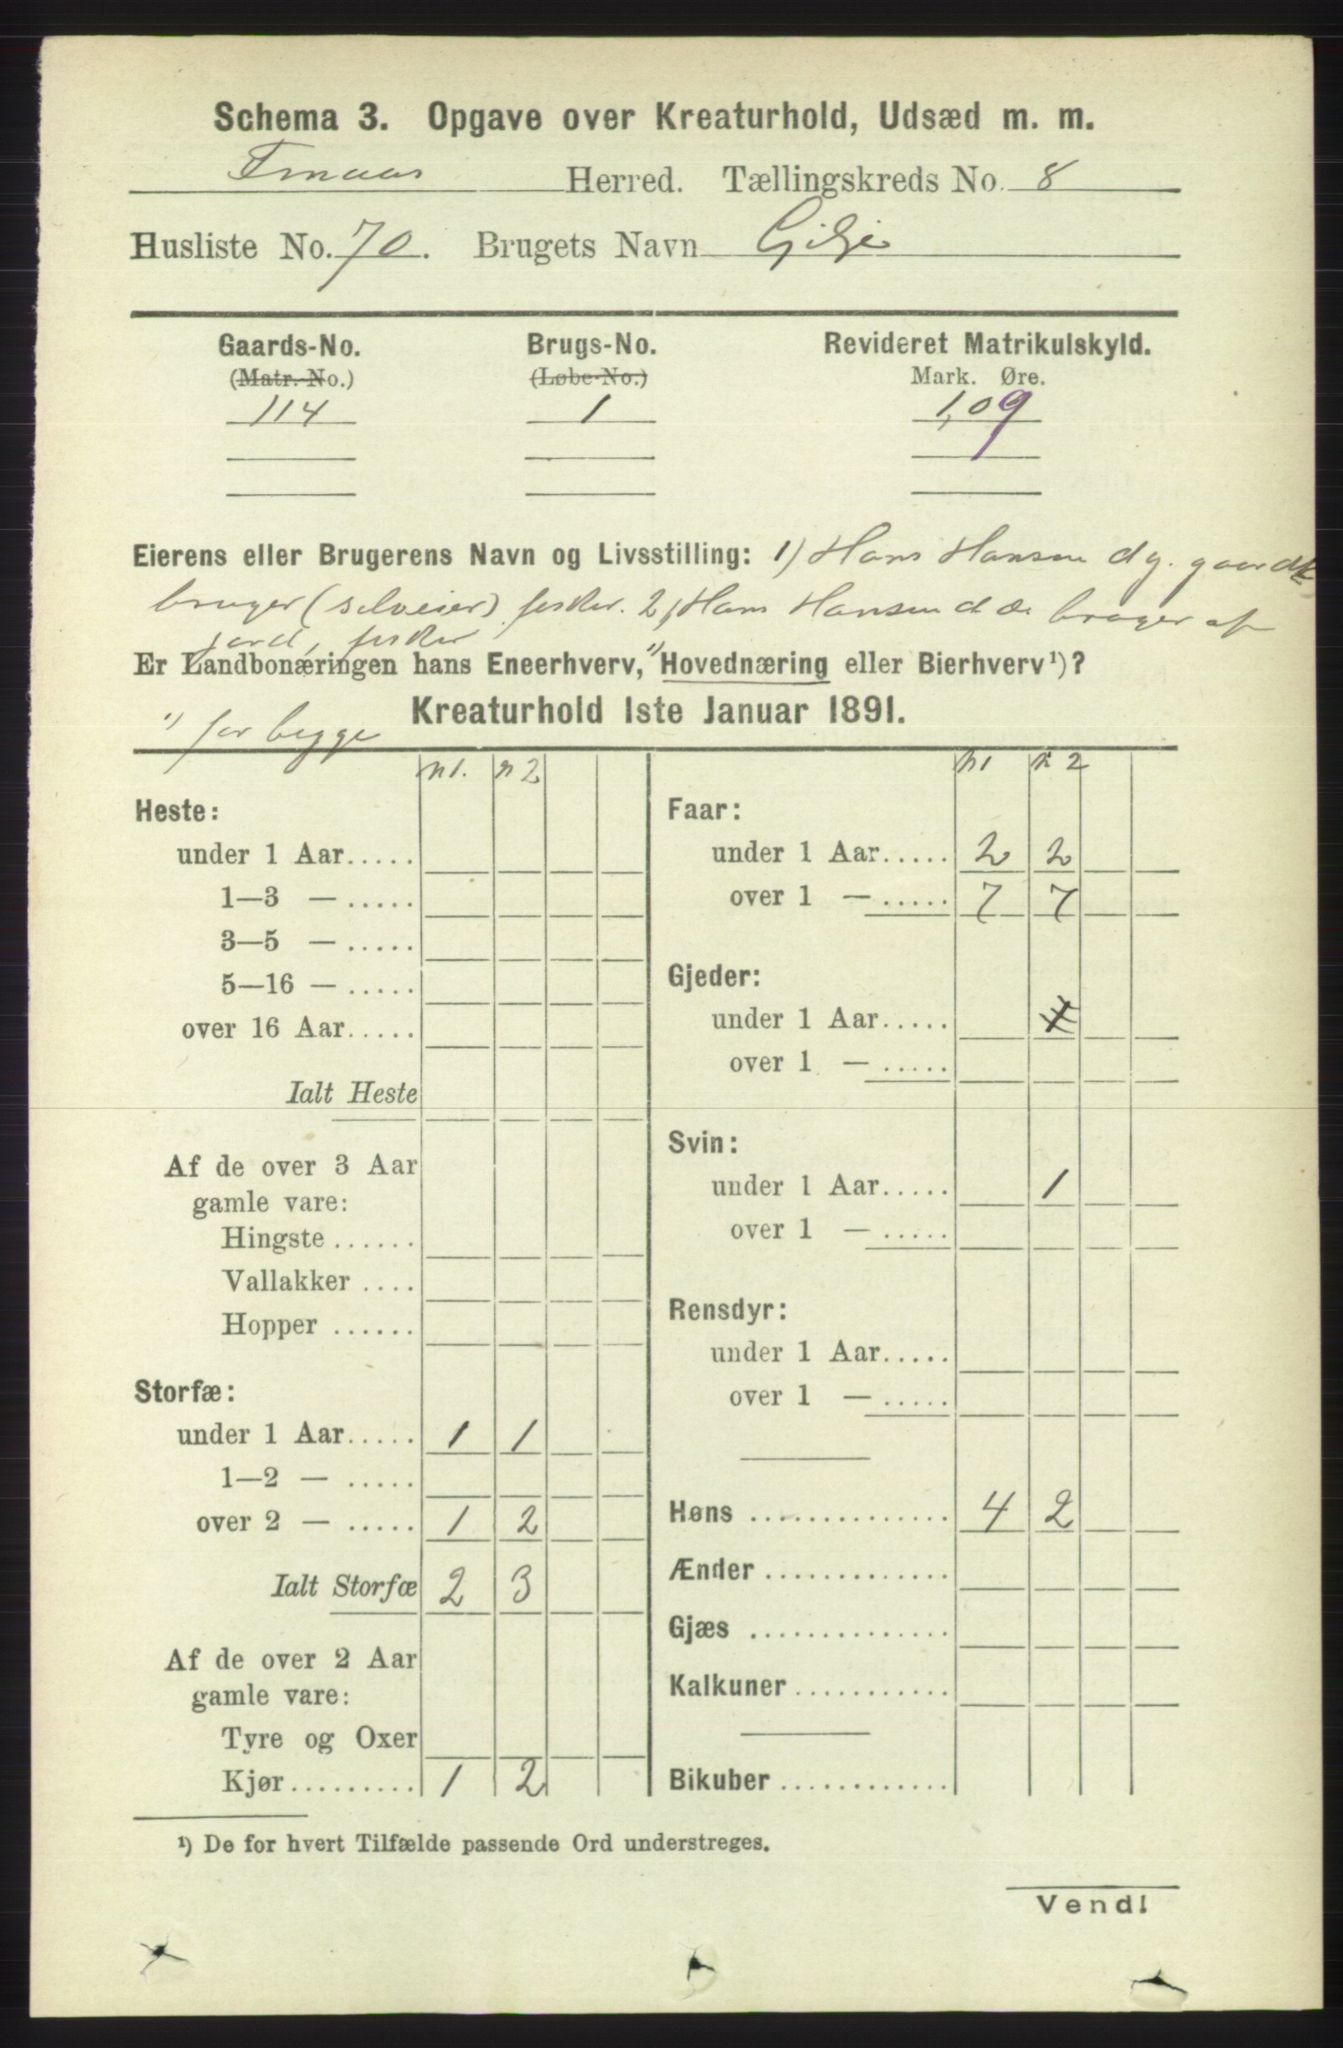 Schema 3. Opgave over Kreaturhold, Udsæd m. m.
Finaas Herred. Tællingskreds No. 8
Husliste No. 70. Brugets Navn Gilje
Gaards-No. Brugs-No. Revideret Matrikulskyld.
(Matr.-No.) (Løbe-No.) Mark. Øre.
114 1 1,09
Eierens eller Brugerens Navn og Livsstilling: 1) Hans Hansen d y. gaard
bruger (selveier) fisker. 2, Hans Hansen d æ. bruger af
jord, fisker
Er Landbonæringen hans Eneerhverv, ") Hovednæring eller Bierhverv¹)?
") for begge
Kreaturhold 1ste Januar 1891.
n 1. n 2
Heste:
under 1 Aar.....
1—3 — .....
3—5 — .....
5—16 — .....
over 16 Aar.....
Ialt Heste
Af de over 3 Aar
gamle vare:
Hingste ......
Vallakker ....
Hopper ......
Storfæ:
under 1 Aar..... 1 1
1—2 — .....
over 2 — ..... 1 2
Ialt Storfæ 2 3
Af de over 2 Aar
gamle vare:
Tyre og Oxer
Kjør......... 1 2
n 1 n 2
Faar:
under 1 Aar..... 2 2
over 1 — ..... 7 7
Gjeder:
under 1 Aar.....
over 1 — .....
Svin:
under 1 Aar..... 1
over 1 — .....
Rensdyr:
under 1 Aar.....
over 1 — .....
Høns .............. 4 2
Ænder .............
Gjæs ..............
Kalkuner...........
Bikuber ............
¹) De for hvert Tilfælde passende Ord understreges.
Vend!